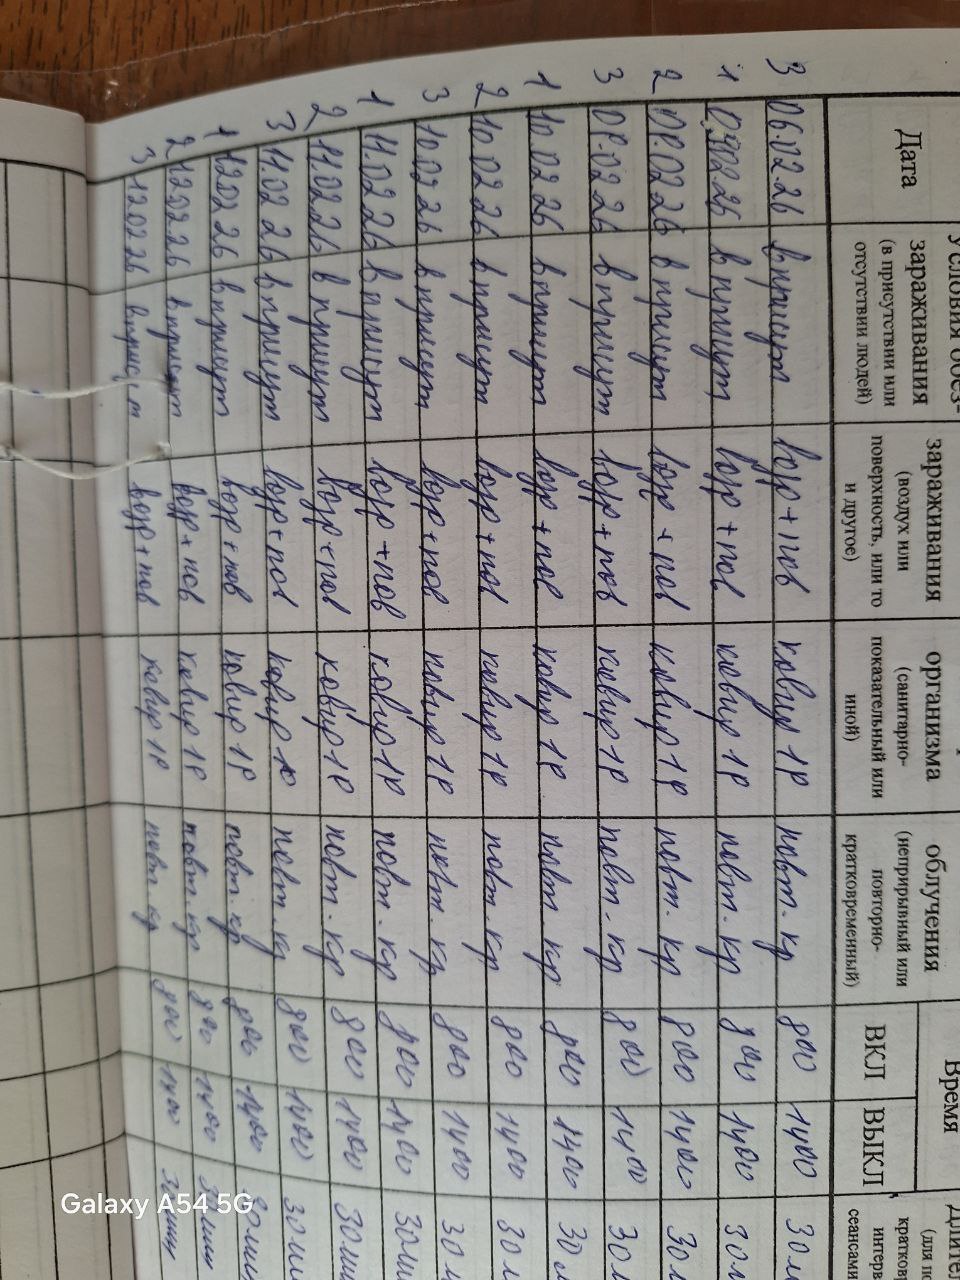 Дата
Условия обез-
зараживания
(в присутствии или
отсутствии людей)
зараживания
(воздух или
поверхность, или то
и другое)
организма
(санитарно-
показательный или
иной)
облучения
(неприрывный или
повторно-
кратковременный)
Время
ВКЛ
ВЫКЛ
3 06.02.26 в присут возр + пов ковир 1р повт. кр 800 1400 30
1 02.26 в присут возр + пов ковир 1р повт. кр 800 1400 30
2 02.26 в присут возр + пов ковир 1р повт. кр 800 1400 30
3 02.26 в присут возр + пов ковир 1р повт. кр 800 1400 30
1 10.02.26 в присут возр + пов ковир 1р повт кр 800 1400 30
2 10.02.26 в присут возр + пов ковир 1р повт. кр 800 1400 30
3 10.02.26 в присут возр + пов ковир 1р повт. кр 800 1400 30
1 11.02.26 в присут возр + пов ковир 1р повт. кр 800 1400 30
2 11.02.26 в присут возр + пов ковир 1р повт. кр 800 1400 30мин
3 11.02.26 в присут возр + пов ковир повт. кр 800 1400 30
1 12.02.26 в присут возр + пов ковир 1р повт. кр 800 1400 30мин
2 12.02.26 в присут возр + пов ковир 1р повт. кр 800 1400 мин
3 12.02.26 в присут возр + пов ковир 1р повт кр 800 1400 30мин
Galaxy A54 5G